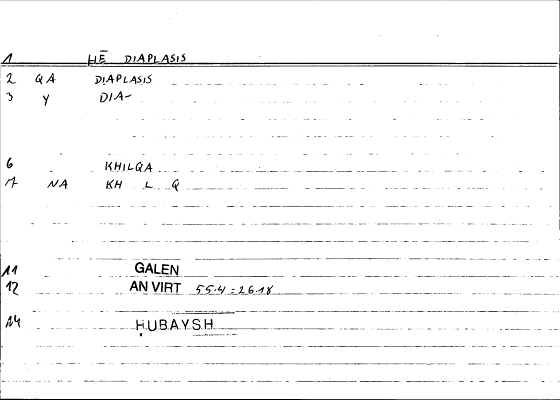 1 HĒ DIAPLASIS
2 QA DIAPLASIS
3 Y DIA-
6 KHILQA
7 NA KH L Q
11 GALEN
12 AN VIRT 55.4 = 26.18
14 ḤUBAYSH